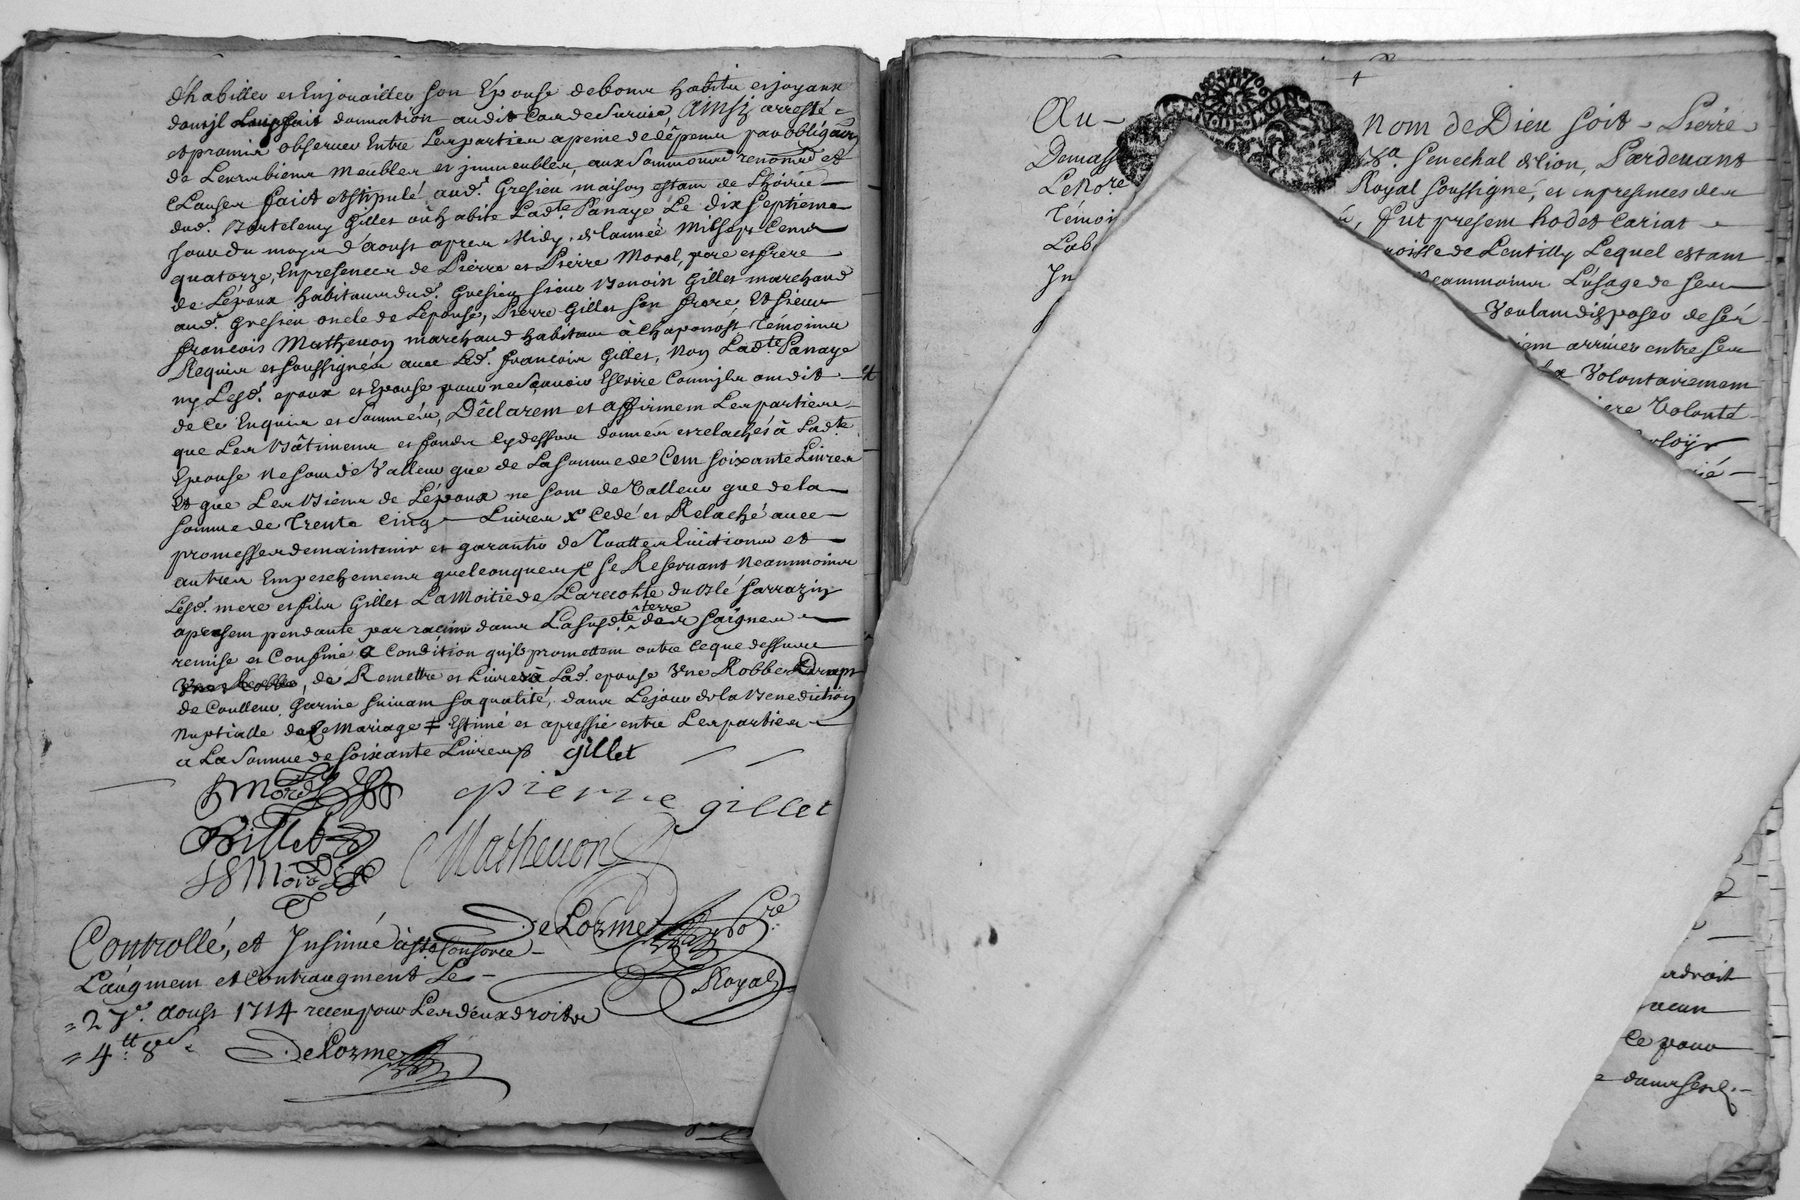 d'habiller et Enjouailler son Epouse de bons habits et joyaux
dont jl Luy fait donnation audit Cas de Survie, Ainsy arresté
et promis observer Entre Les parties a peine de dêpens par obligaõn
de Leurs biens meubles et jmmeubles, aux Soumissions renoncãõns et
Clauses fait et stipulé aud.t Gresieu maison estant de
dud.t Bartelemy Gillet où habite Lad.te Panaye Le dix septieme
jour du moys d'Aoust apres Midy, de l'année Mil sept Cents
quatorze, En presences de Pierre et Pierre Morel, pere et frere
de L'époux habitants dud.t Gresieu sieur Benoist Gillet marchand
aud.t Gresieu oncle de L'épouse, Pierre Gillet son frere et sieur
francois Mathevon marchand habitant à Chaponost Témoins
Requis et soussignés avec Led.t francois Gillet, Non Lad.te Panaye
ny Lesd.ts epoux et Epouse pour ne sçavoir Escrire Comm'jls ont dit
de Ce Enquis et Sommés, Dêclarent et affirment Les parties
que Les Bâtiments et fonds Cydessus donnés et relachés à Lad.te
Epouse Ne sont de Valleur que de La somme de Cent soixante Livres
Et que Les Biens de L'époux ne sont de Valleur que de la
somme de Trente Cinq Livres x Cedé et Relaché avec
promesses de maintenir et garantir de Touttes Evictions et
autres Empeschements quelconques x se Reservants Neanmoins
Lesd.ts mere et fils Gillet La Moitié de La recolte du Blé sarrazin
apresent pendante par racine dans La susd.te terre des saignes
remise et Confiné & Condition qu'jls promettent outre Ce que dessus
Une Robbe, de Remettre et Livrer à Lad.te epouse Une Robbe Drapt
de Coulleur Garnie suivant sa qualité, dans Le jour de la Benediction
Nuptialle de Ce Mariage ‡ Estimé et apressié entre Les parties
a La Somme de soixante Livres gillet
P Morel pierre gillet
B Gillet Mathevon
P Morel
DeLorme No.re Royal
Controllé, et Jnsinué à st Consorce
L'augment et Contraugment Le
= 27.e Aoust 1714 receu pour Les deux droits
= 4.tt 8 s
DeLorme
Au Nom de Dieu soit Pierre
Demass Senechal de Lion, Pardevant
Le No.re Royal soussigné, et en presences des
Témoi fut present hodet Cariat
Lab roisse de Lentilly Lequel estant
Jn eanmoins L'usage de ses
Voulant disposer de ses
arriver entre ses
Volontairement
iere Volonté
droit
aucun
Ce pour
dans